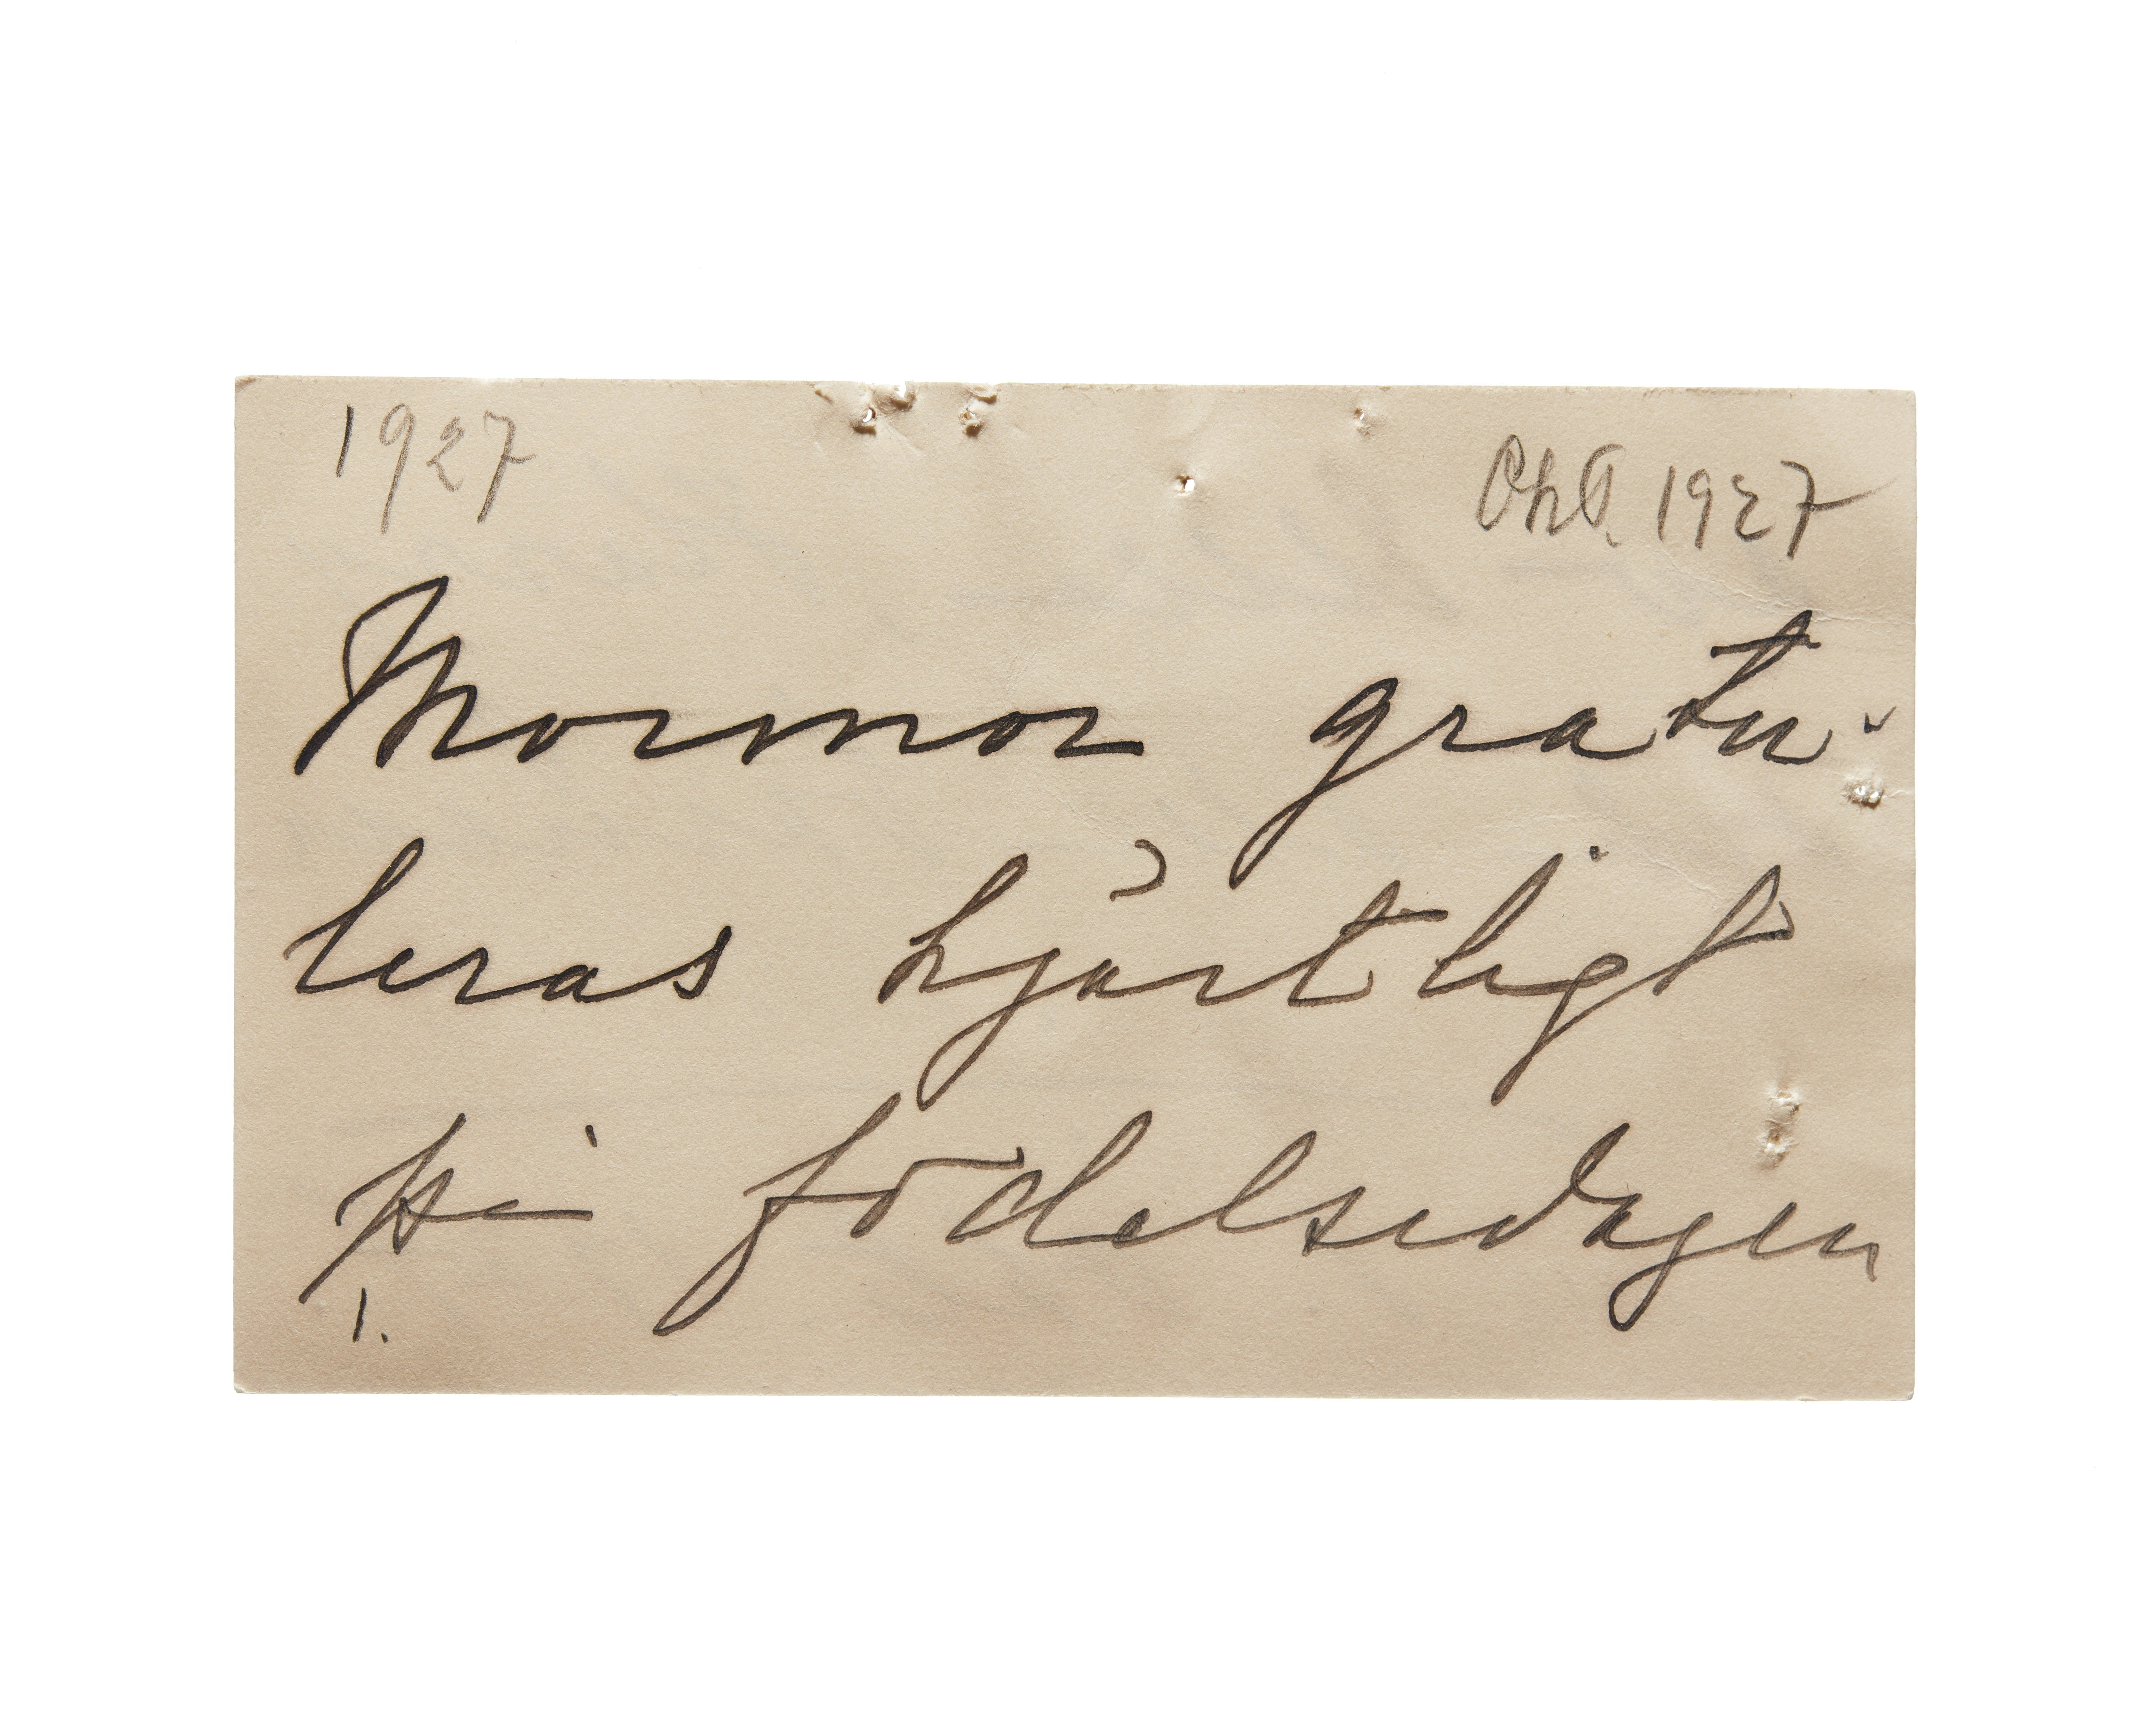 1927
Okt. 1927
Mormor gratu-
leras hjärtligt
på födelsedagen
1.